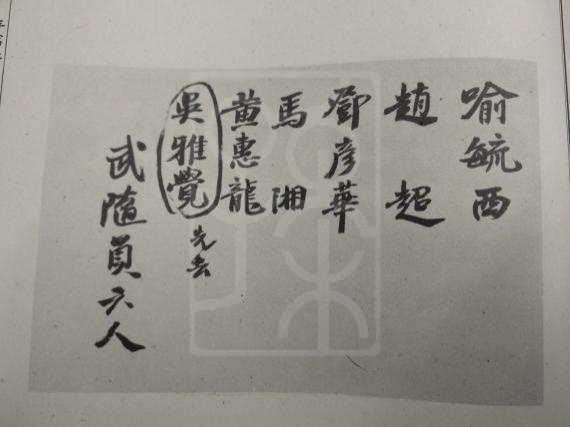 喻毓西
趙超
鄧彥華
馬湘
黃惠龍
吳雅覺 先去
武隨員六人